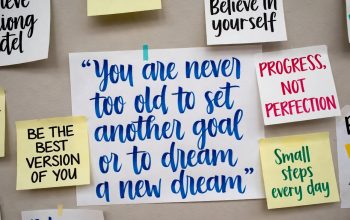 Believe in
yourself
"You are never
too old to set
another goal
or to dream
a new dream"
PROGRESS,
NOT
PERFECTION
BE THE BEST
VERSION
OF YOU
Small
steps
every day